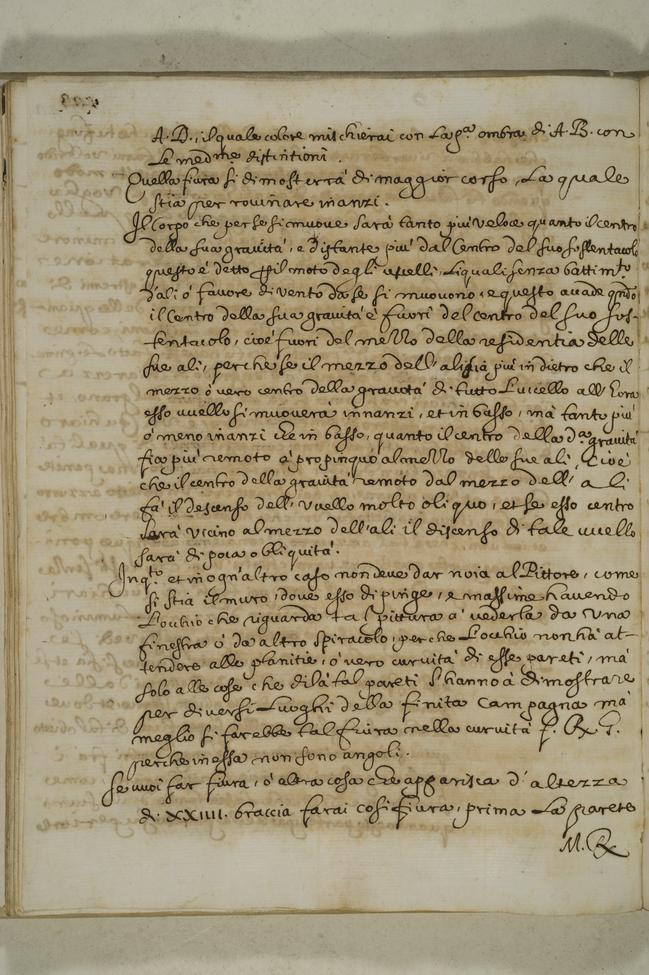 A. D., il quale colore mischierai con la p.ª ombra di A. B. con
le med.me distintioni.
Quella fiura si dimosterrà di maggior corso, la quale
stia per rouinare inanzi.
Il Corpo che per se si muoue sarà tanto più ueloce quanto il centro
della sua grauità, è distante più dal Centro del suo sostentacolo
questo è detto p il moto degl'uccelli, li quali senza battim.to
d'ali ò fauore di uento da se si muouono, e questo accade qndo
il Centro della sua grauità è fuori del centro del suo sus-
tentacolo, cioè fuori del mezzo della residentia delle
sue ali, perche se il mezzo dell'ali sia più indietro che il
mezzo ò uero centro della grauotà di tutto l'uccello all'hora
esso uccello si muouerà innanzi, et in basso, mà tanto più
ò meno inanzi che in basso, quanto il centro della d.ª grauità
fia più remoto ò propinquo al mezzo delle sue ali, Cioè
che il centro della grauità remoto dal mezzo dell'ali
fà il descenso dell'uccello molto oliquo, et se esso centro
serà uicino al mezzo dell'ali il discenso di tale uccello
sarà di poca obliquità.
In q.to et in ogn'altro caso non deue dar noia al Pittore, come
si stia il muro, doue esso dipinge, e massime hauendo
l'occhio che riguarda tal pittura à uederla da una
finestra ò da altro spiracolo, perche l'occhio non hà at-
tendere alle planitie, ò uero curuità di esse pareti, mà
solo alle cose che di là tal pareti s'hanno à dimostrare
per diuersi luoghi della finita campagna mà
meglio si farebbe tal fiura nella curuità f. R. G.
perche in essa non sono angoli.
Se uuoi far fiura, ò altra cosa che apparisca d'altezza
di XXIIII. braccia farai così fiura, prima la parete
M. R